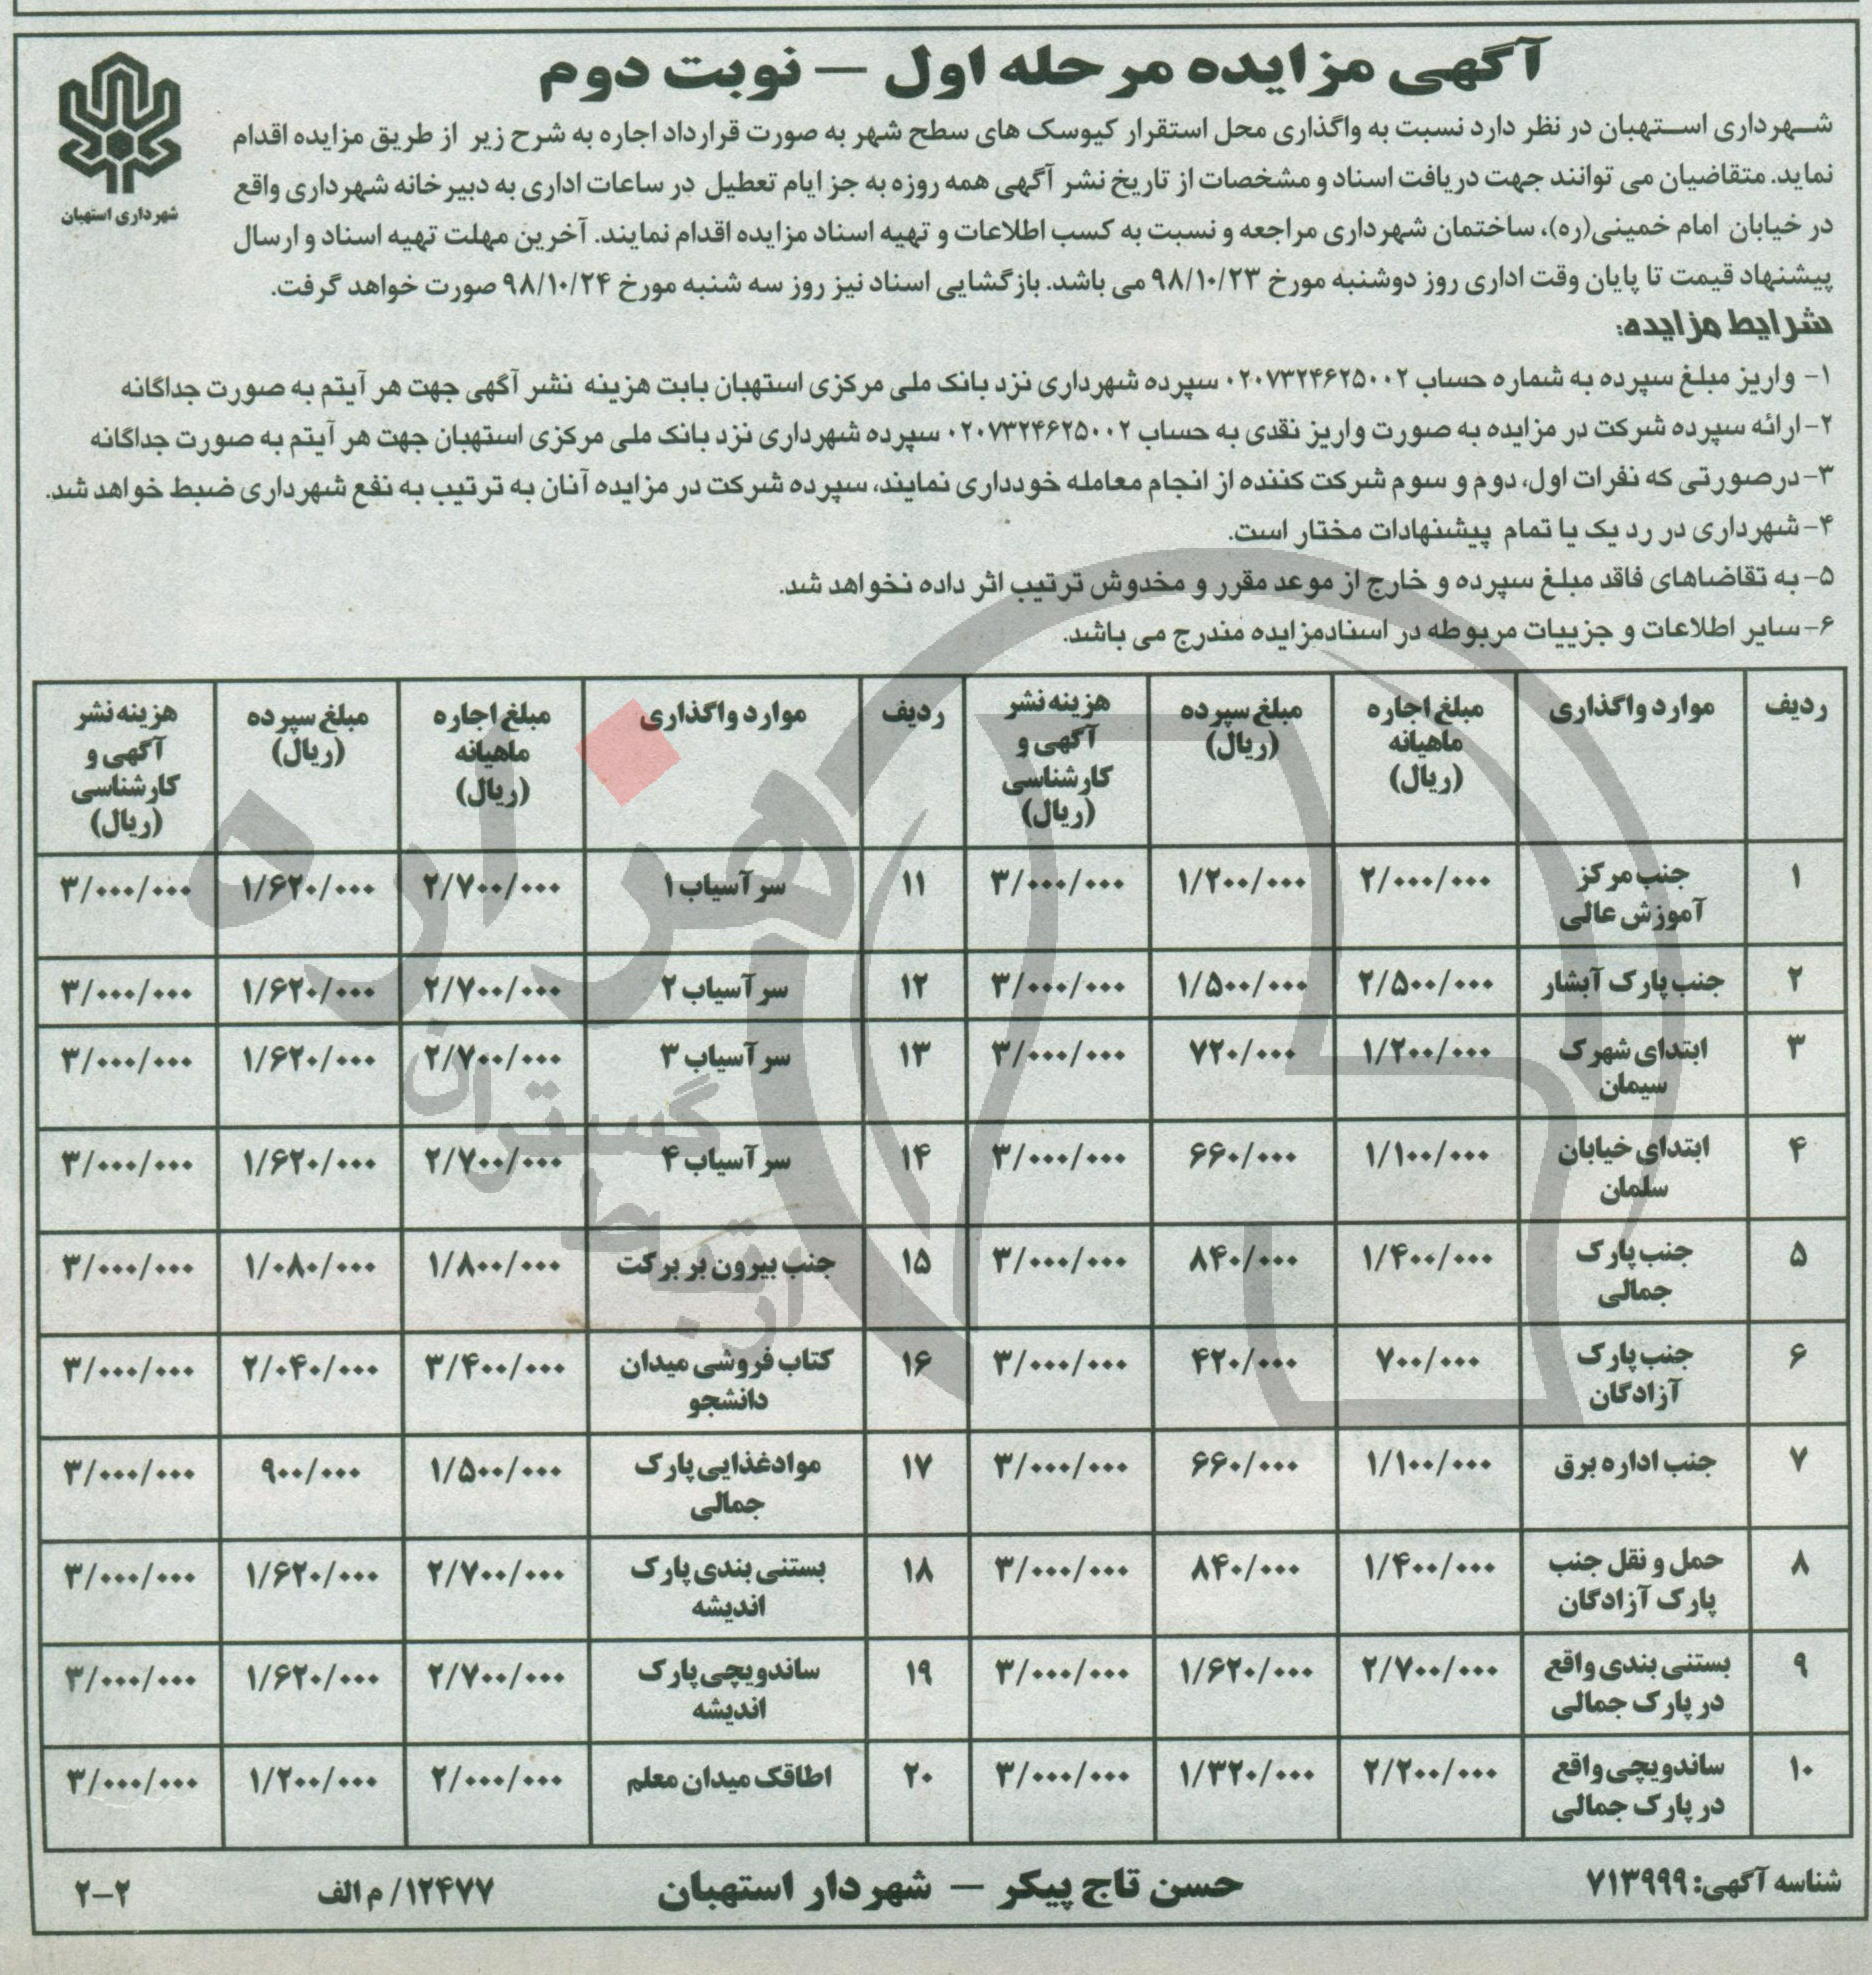 آگهی مزایده مرحله اول – نوبت دوم
شهرداری استهبان
شهرداری استهبان در نظر دارد نسبت به واگذاری محل استقرار کیوسک های سطح شهر به صورت قرارداد اجاره به شرح زیر از طریق مزایده اقدام
نماید. متقاضیان می توانند جهت دریافت اسناد و مشخصات از تاریخ نشر آگهی همه روزه به جز ایام تعطیل در ساعات اداری به دبیرخانه شهرداری واقع
در خیابان امام خمینی(ره)، ساختمان شهرداری مراجعه و نسبت به کسب اطلاعات و تهیه اسناد مزایده اقدام نمایند. آخرین مهلت تهیه اسناد و ارسال
پیشنهاد قیمت تا پایان وقت اداری روز دوشنبه مورخ ۹۸/۱۰/۲۳ می باشد. بازگشایی اسناد نیز روز سه شنبه مورخ ۹۸/۱۰/۲۴ صورت خواهد گرفت.
شرایط مزایده:
۱- واریز مبلغ سپرده به شماره حساب ۰۲۰۷۳۲۴۶۲۵۰۰۲ سپرده شهرداری نزد بانک ملی مرکزی استهبان بابت هزینه نشر آگهی جهت هر آیتم به صورت جداگانه
۲-ارائه سپرده شرکت در مزایده به صورت واریز نقدی به حساب ۰۲۰۷۳۲۴۶۲۵۰۰۲ سپرده شهرداری نزد بانک ملی مرکزی استهبان جهت هر آیتم به صورت جداگانه
۳-درصورتی که نفرات اول، دوم و سوم شرکت کننده از انجام معامله خودداری نمایند، سپرده شرکت در مزایده آنان به ترتیب به نفع شهرداری ضبط خواهد شد.
۴-شهرداری در رد یک یا تمام پیشنهادات مختار است.
۵-به تقاضاهای فاقد مبلغ سپرده و خارج از موعد مقرر و مخدوش ترتیب اثر داده نخواهد شد.
۶-سایر اطلاعات و جزییات مربوطه در اسنادمزایده مندرج می باشد.
ردیف موارد واگذاری مبلغ اجاره ماهیانه (ریال) مبلغ سپرده (ریال) هزینه نشر آگهی و کارشناسی (ریال) ردیف موارد واگذاری مبلغ اجاره ماهیانه (ریال) مبلغ سپرده (ریال) هزینه نشر آگهی و کارشناسی (ریال)
۱ جنب مرکز آموزش عالی ۲/۰۰۰/۰۰۰ ۱/۲۰۰/۰۰۰ ۳/۰۰۰/۰۰۰ ۱۱ سر آسیاب ۱ ۲/۷۰۰/۰۰۰ ۱/۶۲۰/۰۰۰ ۳/۰۰۰/۰۰۰
۲ جنب پارک آبشار ۲/۵۰۰/۰۰۰ ۱/۵۰۰/۰۰۰ ۳/۰۰۰/۰۰۰ ۱۲ سر آسیاب ۲ ۲/۷۰۰/۰۰۰ ۱/۶۲۰/۰۰۰ ۳/۰۰۰/۰۰۰
۳ ابتدای شهرک سیمان ۱/۲۰۰/۰۰۰ ۷۲۰/۰۰۰ ۳/۰۰۰/۰۰۰ ۱۳ سر آسیاب ۳ ۲/۷۰۰/۰۰۰ ۱/۶۲۰/۰۰۰ ۳/۰۰۰/۰۰۰
۴ ابتدای خیابان سلمان ۱/۱۰۰/۰۰۰ ۶۶۰/۰۰۰ ۳/۰۰۰/۰۰۰ ۱۴ سر آسیاب ۴ ۲/۷۰۰/۰۰۰ ۱/۶۲۰/۰۰۰ ۳/۰۰۰/۰۰۰
۵ جنب پارک جمالی ۱/۴۰۰/۰۰۰ ۸۴۰/۰۰۰ ۳/۰۰۰/۰۰۰ ۱۵ جنب بیرون بر برکت ۱/۸۰۰/۰۰۰ ۱/۰۸۰/۰۰۰ ۳/۰۰۰/۰۰۰
۶ جنب پارک آزادگان ۷۰۰/۰۰۰ ۴۲۰/۰۰۰ ۳/۰۰۰/۰۰۰ ۱۶ کتاب فروشی میدان دانشجو ۳/۴۰۰/۰۰۰ ۲/۰۴۰/۰۰۰ ۳/۰۰۰/۰۰۰
۷ جنب اداره برق ۱/۱۰۰/۰۰۰ ۶۶۰/۰۰۰ ۳/۰۰۰/۰۰۰ ۱۷ موادغذایی پارک جمالی ۱/۵۰۰/۰۰۰ ۹۰۰/۰۰۰ ۳/۰۰۰/۰۰۰
۸ حمل و نقل جنب پارک آزادگان ۱/۴۰۰/۰۰۰ ۸۴۰/۰۰۰ ۳/۰۰۰/۰۰۰ ۱۸ بستنی بندی پارک اندیشه ۲/۷۰۰/۰۰۰ ۱/۶۲۰/۰۰۰ ۳/۰۰۰/۰۰۰
۹ بستنی بندی واقع در پارک جمالی ۲/۷۰۰/۰۰۰ ۱/۶۲۰/۰۰۰ ۳/۰۰۰/۰۰۰ ۱۹ ساندویچی پارک اندیشه ۲/۷۰۰/۰۰۰ ۱/۶۲۰/۰۰۰ ۳/۰۰۰/۰۰۰
۱۰ ساندویچی واقع در پارک جمالی ۲/۲۰۰/۰۰۰ ۱/۳۲۰/۰۰۰ ۳/۰۰۰/۰۰۰ ۲۰ اطاقک میدان معلم ۲/۰۰۰/۰۰۰ ۱/۲۰۰/۰۰۰ ۳/۰۰۰/۰۰۰
شناسه آگهی: ۷۱۳۹۹۹ حسن تاج پیکر – شهردار استهبان ۱۲۴۷۷/ م الف ۲-۲
هزاره
ارتباط گستران